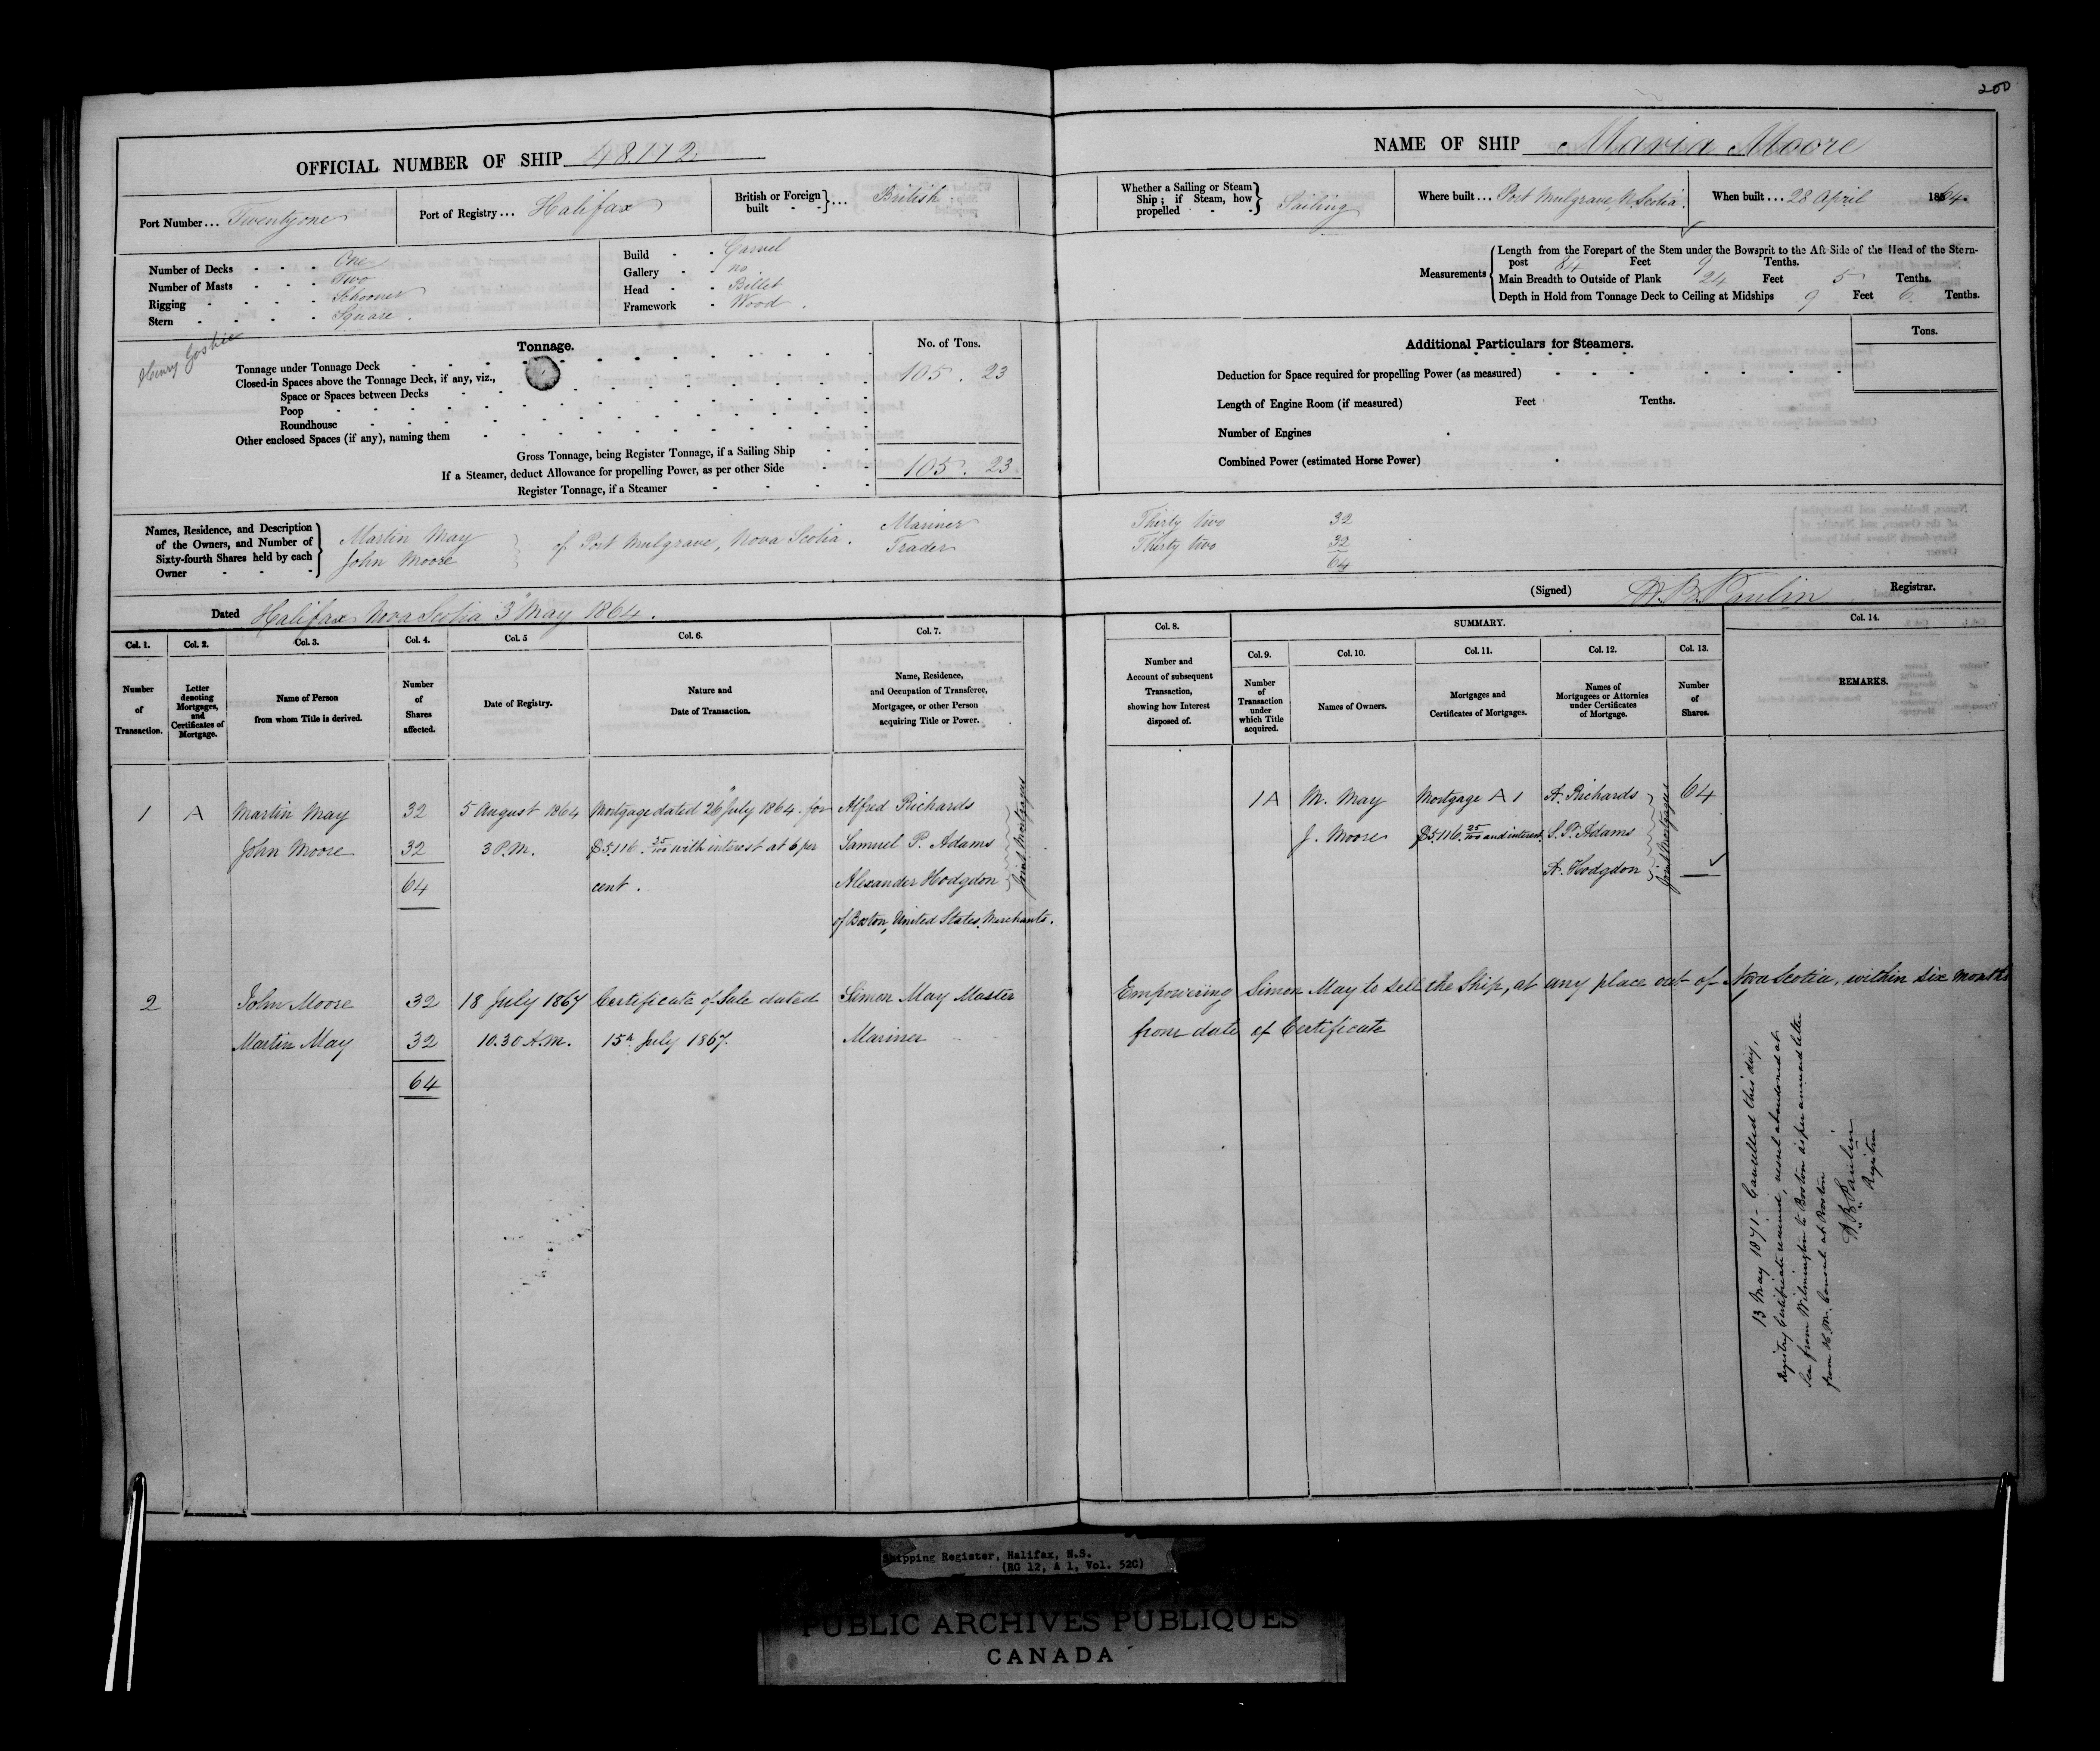 200
OFFICIAL NUMBER OF SHIP 48.112.
NAME OF SHIP Maria Moore
Port Number... Twenty one
Port of Registry... Halifax
British or Foreign built } ... British
Whether a Sailing or Steam Ship; if Steam, how propelled } Sailing
Where built... Port Mulgrave, N. Scotia.
When built... 28 April 1864.
Number of Decks One
Number of Masts Two
Rigging Schooner
Stern Square.
Build Carvel
Gallery no
Head Billet
Framework Wood.
Measurements { Length from the Forepart of the Stem under the Bowsprit to the Aft Side of the Head of the Stern-
post 84 Feet 9 Tenths.
Main Breadth to Outside of Plank 24 Feet 5 Tenths.
Depth in Hold from Tonnage Deck to Ceiling at Midships 9 Feet 6 Tenths.
Henry
Tonnage.
No. of Tons.
Tonnage under Tonnage Deck 105. 23
Closed-in Spaces above the Tonnage Deck, if any, viz.,
Space or Spaces between Decks
Poop
Roundhouse
Other enclosed Spaces (if any), naming them
Gross Tonnage, being Register Tonnage, if a Sailing Ship 105. 23
If a Steamer, deduct Allowance for propelling Power, as per other Side
Register Tonnage, if a Steamer
Additional Particulars for Steamers.
Tons.
Deduction for Space required for propelling Power (as measured)
Length of Engine Room (if measured) Feet Tenths.
Number of Engines
Combined Power (estimated Horse Power)
Names, Residence, and Description
of the Owners, and Number of
Sixty-fourth Shares held by each
Owner
Martin May
John Moore
} of Port Mulgrave, Nova Scotia.
Mariner
Trader
Thirty two 32
Thirty two 32
64
Dated Halifax Nova Scotia 3d May 1864.
(Signed) H. B. Paulin Registrar.
Col. 1.
Number
of
Transaction.
Col. 2.
Letter
denoting
Mortgages,
and
Certificates of
Mortgage.
Col. 3.
Name of Person
from whom Title is derived.
Col. 4.
Number
of
Shares
affected.
Col. 5
Date of Registry.
Col. 6.
Nature and
Date of Transaction.
Col. 7.
Name, Residence,
and Occupation of Transferee,
Mortgagee, or other Person
acquiring Title or Power.
Col. 8.
Number and
Account of subsequent
Transaction,
showing how Interest
disposed of.
SUMMARY.
Col. 9.
Number
of
Transaction
under
which Title
acquired.
Col. 10.
Names of Owners.
Col. 11.
Mortgages and
Certificates of Mortgages.
Col. 12.
Names of
Mortgagees or Attornies
under Certificates
of Mortgage.
Col. 13.
Number
of
Shares.
Col. 14.
REMARKS.
1 A Martin May 32 5 August 1864 Mortgage dated 26 July 1864. for Alfred Richards
John Moore 32 3 P.M. $5.116. 25/100 with interest at 6 per Samuel P. Adams
64 cent. Alexander Hodgdon
of Boston, United States. Merchants.
Joint Mortgagees
1 A M. May Mortgage A 1 A. Richards 64
J. Moore $5.116. 25/100 and interest. S. P. Adams
A. Hodgdon
Joint Mortgagees
2 John Moore 32 18 July 1867 Certificate of Sale dated Simon May Master
Martin May 32 10.30 A.M. 15th July 1867. Mariner
64
Empowering Simon May to sell the Ship, at any place out of Nova Scotia, within six months
from date of Certificate
13 May 1871 - Cancelled this day,
Registry Certificate returned, vessel abandoned at
Sea from Wilmington to Boston as per annexed letter
from H. M. Consul at Boston
H B Paulin
Registrar
Shipping Register, Halifax, N.S.
(RG 12, A 1, Vol. 52C)
PUBLIC ARCHIVES PUBLIQUES
CANADA